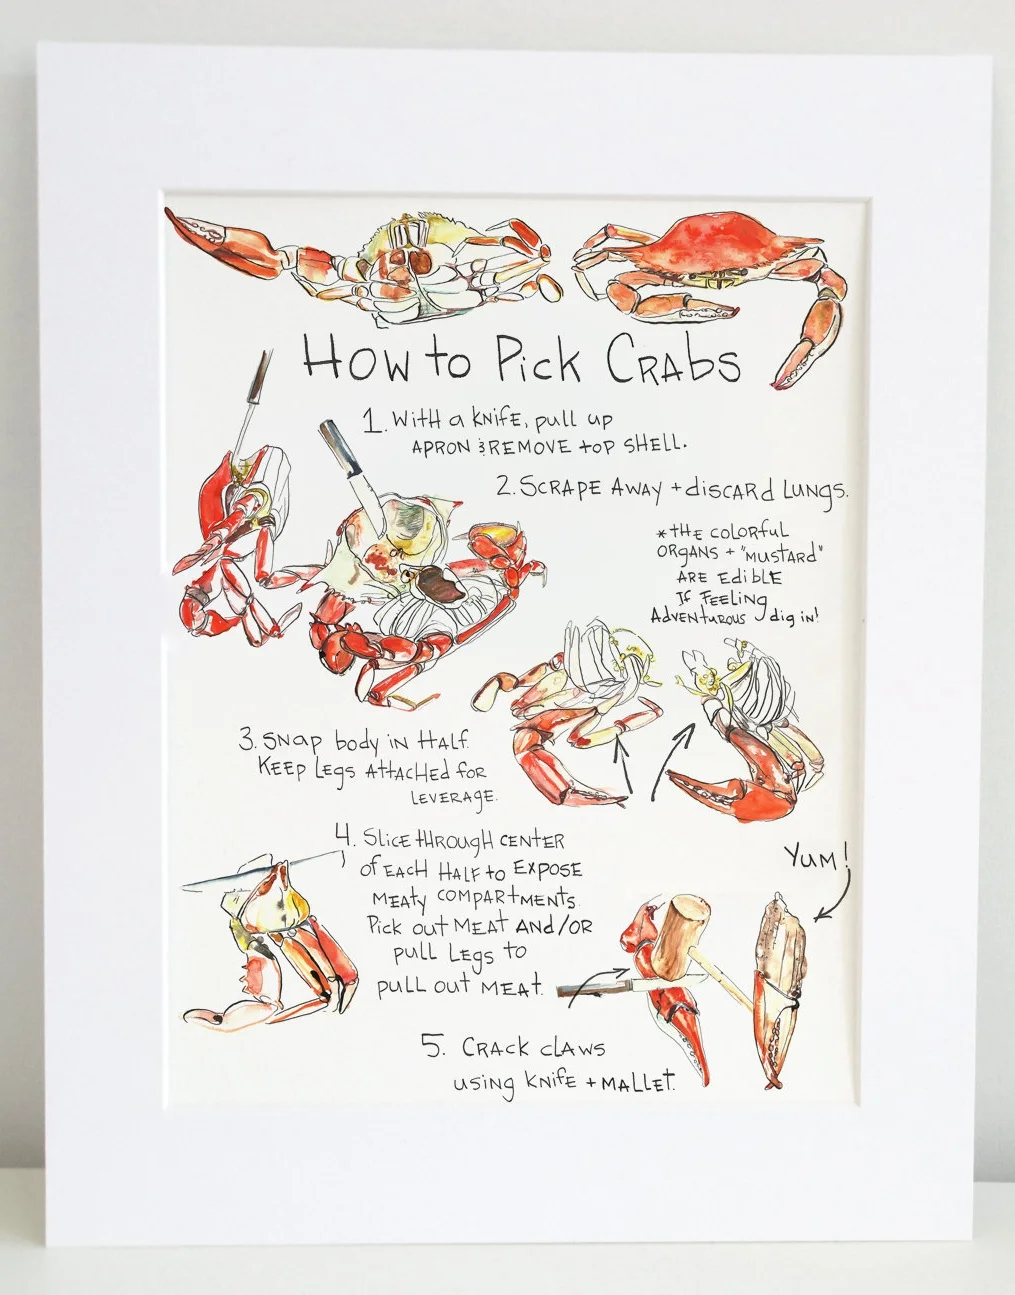 How to Pick Crabs
1. With a knife, pull up
apron & remove top shell.
2. Scrape away + discard lungs.
*The colorful
organs + "mustard"
are edible
If feeling
adventurous dig in!
3. Snap body in half.
Keep legs attached for
leverage.
4. Slice through center
of each half to expose
meaty compartments.
Pick out meat and/or
pull legs to
pull out meat.
Yum!
5. Crack claws
using knife + mallet.